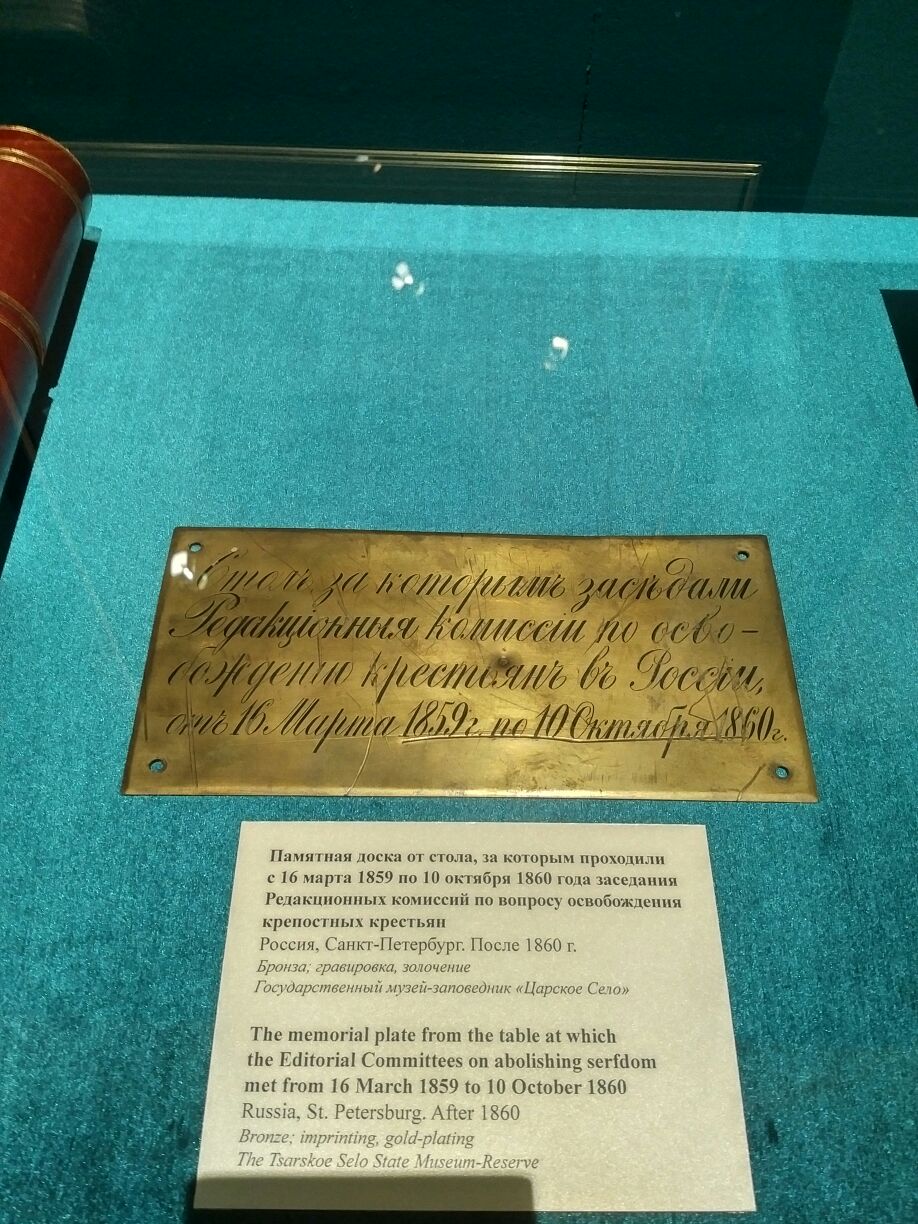 Столъ за которымъ засѣдали
Редакціонныя Комиссіи по осво-
божденію крестьянъ въ Россіи,
отъ 16 Марта 1859 г. по 10 Октября 1860 г.
Памятная доска от стола, за которым проходили
с 16 марта 1859 по 10 октября 1860 года заседания
Редакционных комиссий по вопросу освобождения
крепостных крестьян
Россия, Санкт-Петербург. После 1860 г.
Бронза; гравировка, золочение
Государственный музей-заповедник «Царское Село»
The memorial plate from the table at which
the Editorial Committees on abolishing serfdom
met from 16 March 1859 to 10 October 1860
Russia, St. Petersburg. After 1860
Bronze; imprinting, gold-plating
The Tsarskoe Selo State Museum-Reserve